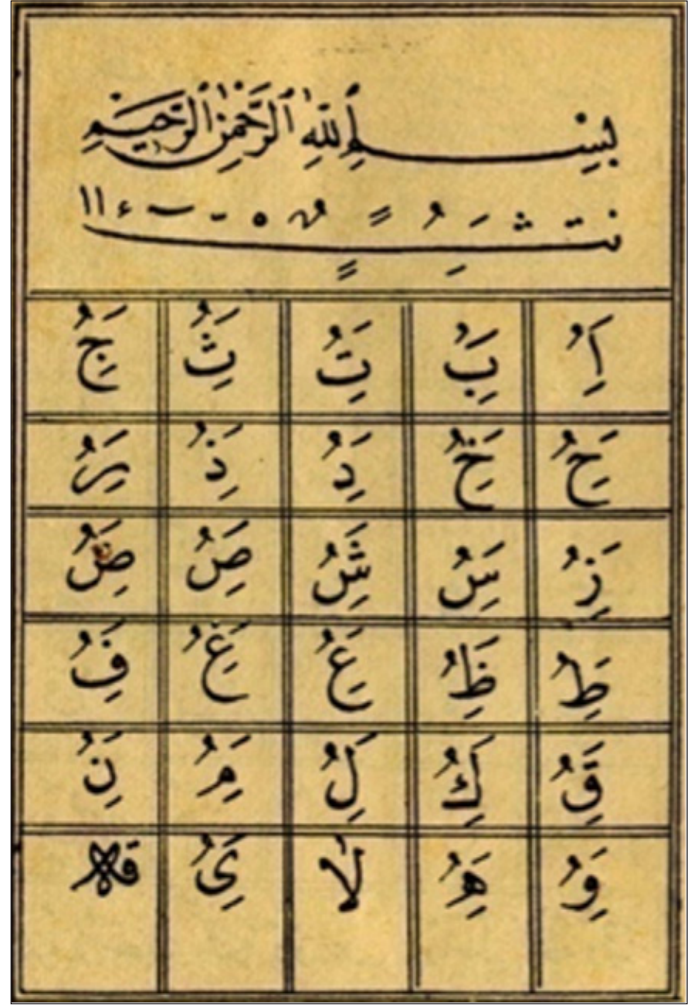 بِسْمِ ٱللّٰهِ ٱلرَّحْمٰنِ ٱلرَّحِيمِ
اَُِ بَُِ تَُِ ثَُِ جَُِ
حَُِ خَُِ دَُِ ذَُِ رَُِ
زَُِ سَُِ شَُِ صَُِ ضَُِ
طَُِ ظَُِ عَُِ غَُِ فَُِ
قَُِ كَُِ لَُِ مَُِ نَُِ
وَُِ هَُِ لَا ىَُِ